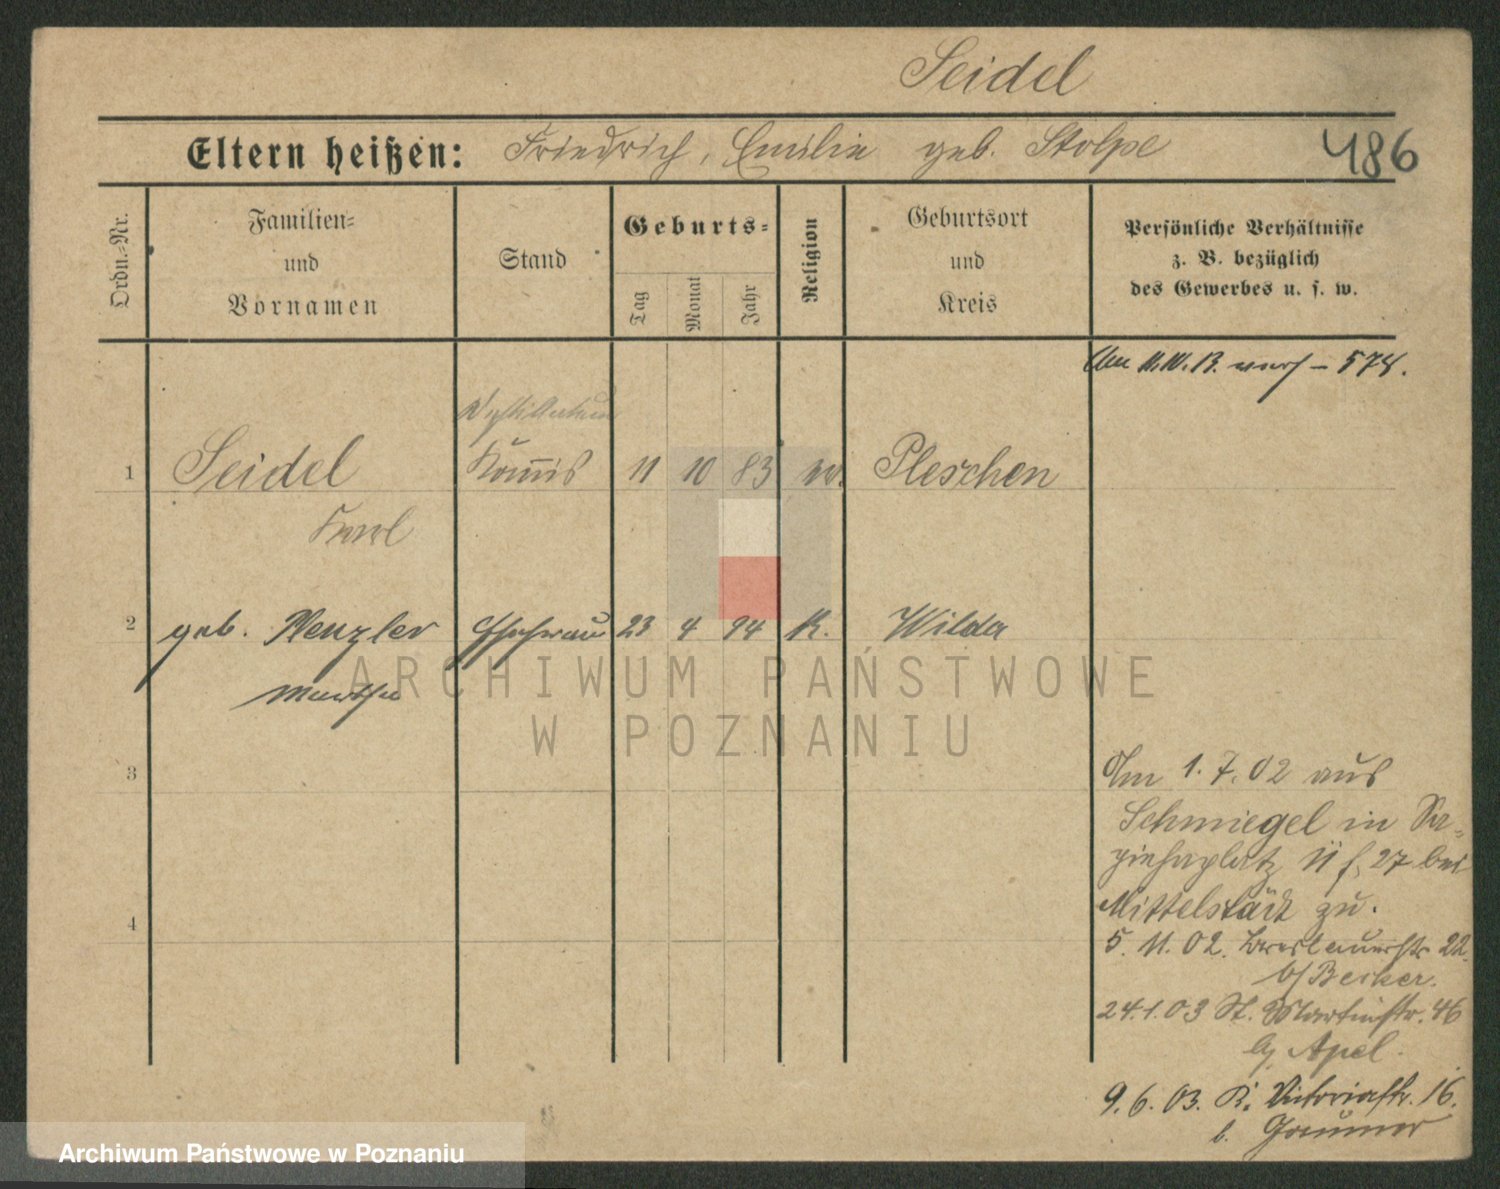 Seidel
Eltern heißen: Friedrich, Emilie geb. Stolpe
486
Ordn.-Nr.
Familien-
und
Vornamen
Stand
Geburts-
Tag
Monat
Jahr
Religion
Geburtsort
und
Kreis
Persönliche Verhältnisse
z. B. bezüglich
des Gewerbes u. s. w.
578.
1 Seidel Kommis 11 10 83 Pleschen
Karl
2 geb. Menzler Ehefrau 23 4 94 K. Wilda
Martha
ARCHIWUM PAŃSTWOWE
W POZNANIU
3
Am 1.7.02 aus
Schmiegel in Sa-
piehaplatz 27 bei
Mittelstädt zu.
4
5.11.02. Breslauerstr 22.
b/ Becker.
24.1.03 St. Martinstr. 46
Apel.
9.6.03. K. Victoriastr. 16.
b.
Archiwum Państwowe w Poznaniu